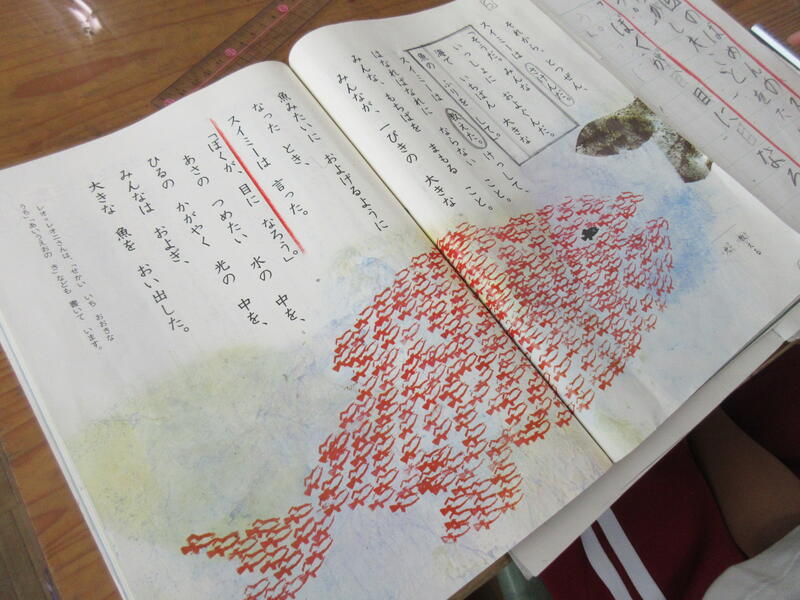 それから、とつぜん、
スイミーは さけんだ。
「そうだ。みんな いっしょに およぐんだ。
海で いちばん 大きな
魚の ふりを して。」
スイミーは 教えた。けっして、
はなればなれに ならない こと。
みんな、もちばを まもる こと。
みんなが、一ぴきの 大きな
魚みたいに およげるように
なった とき、
スイミーは 言った。
「ぼくが、目に なろう。」
あさの つめたい 水の 中を、
ひるの かがやく 光の 中を、
みんなは およぎ、
大きな 魚を おい出した。
レオ=レオニさんは、「せかい いち おおきな
うち」「あいうえおの き」なども 書いて います。